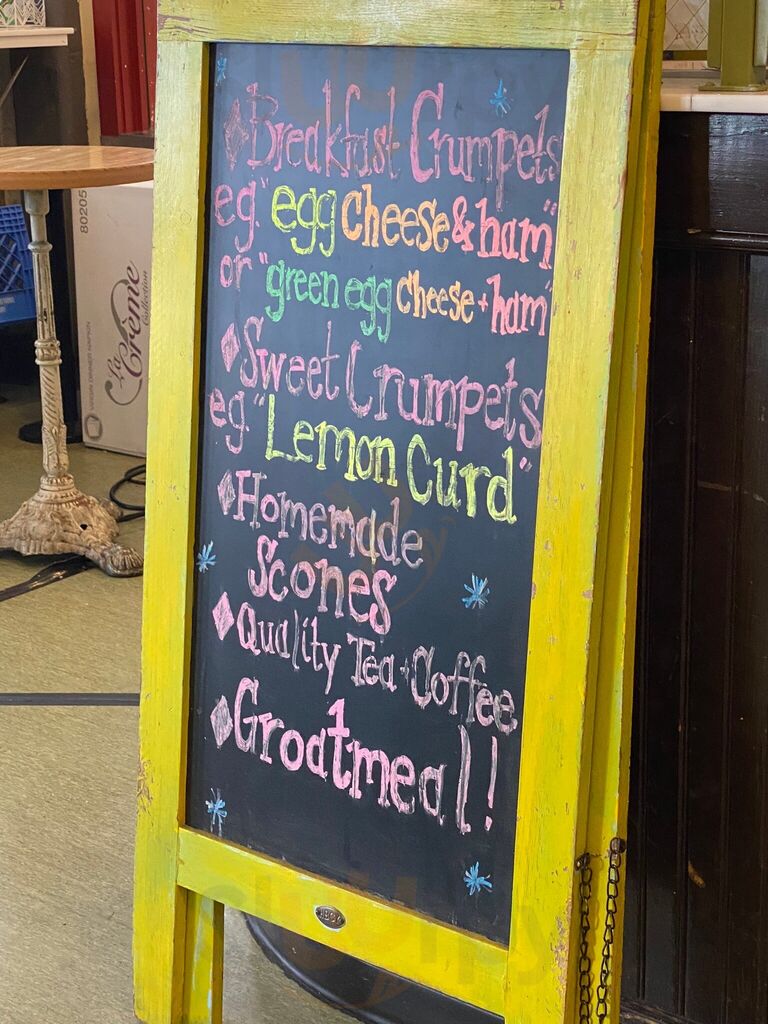 Breakfast Crumpets
eg. "egg cheese & ham"
or "green egg cheese + ham"
Sweet Crumpets
eg. "Lemon Curd"
Homemade
Scones
Quality Tea + Coffee
Groatmeal!
80205
La
Crème
Collection